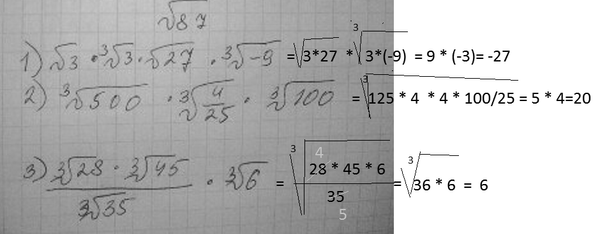 √87
1) √3 · ³√3 · √27 · ³√-9 = √3*27 * ³√3*(-9) = 9 * (-3)= -27
2) ³√500 · ³√4/25 · ³√100 = ³√125 * 4 * 4 * 100/25 = 5 * 4=20
3) ³√28 · ³√45 / ³√35 · ³√6 = ³√28 * 45 * 6 / 35 = ³√36 * 6 = 6
4
5